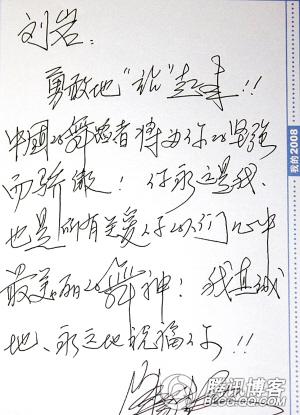 刘岩：
勇敢地“站”起来!!
中國的舞蹈者将为你的坚强
而骄傲！你永远是我、
也是所有关爱你的人们心中
最美丽的舞神！我真诚
地、永远地祝福你!!
我的2008
腾讯博客
BLOG.QQ.COM